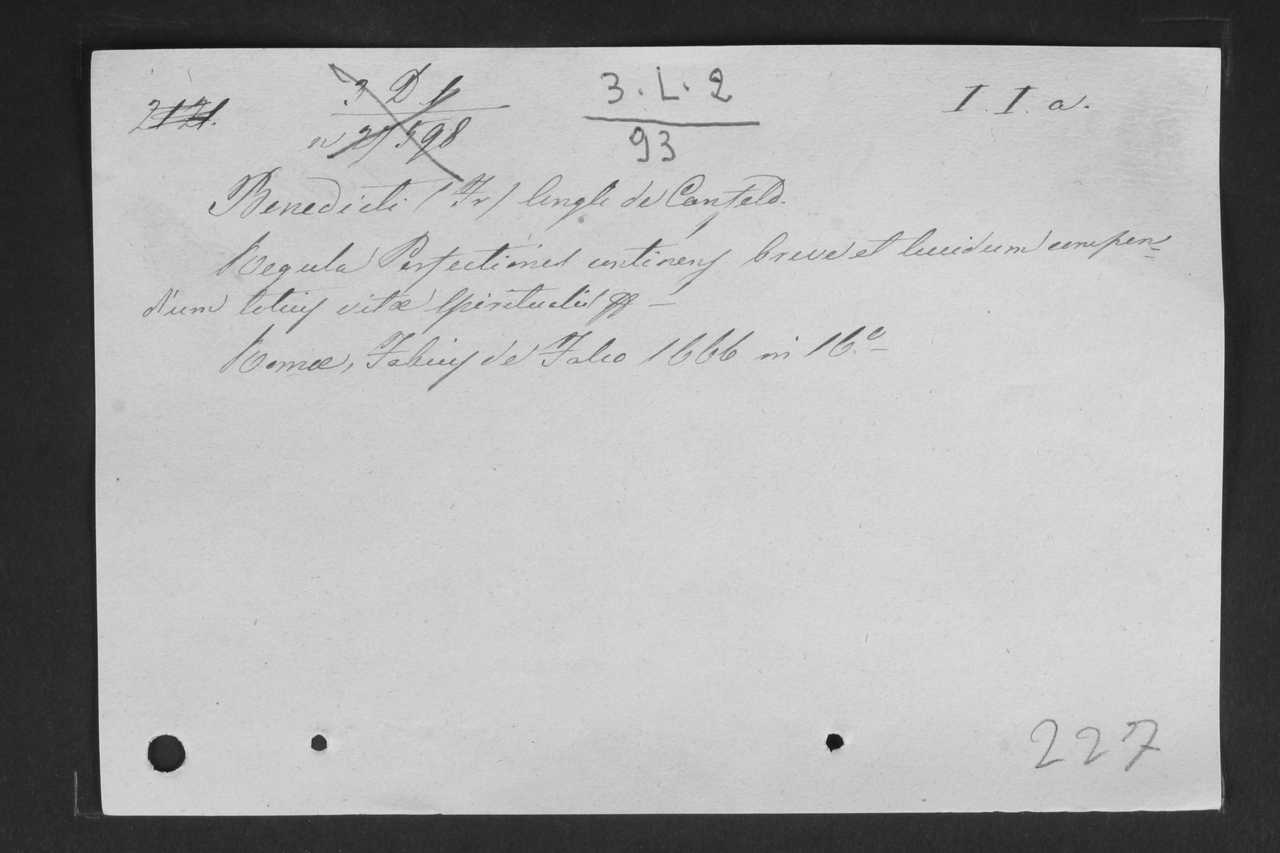 3 D. 4
2121.
3. L. 2
I. I. a.
n 27598
93
Benedicti (Fr) Angli de Canfeld.
Regula Perfectionis continens breve et lucidum compen-
dium totius vitæ spiritualis &&—
Romæ, Fabius de Falco 1666 in 16.º—
227